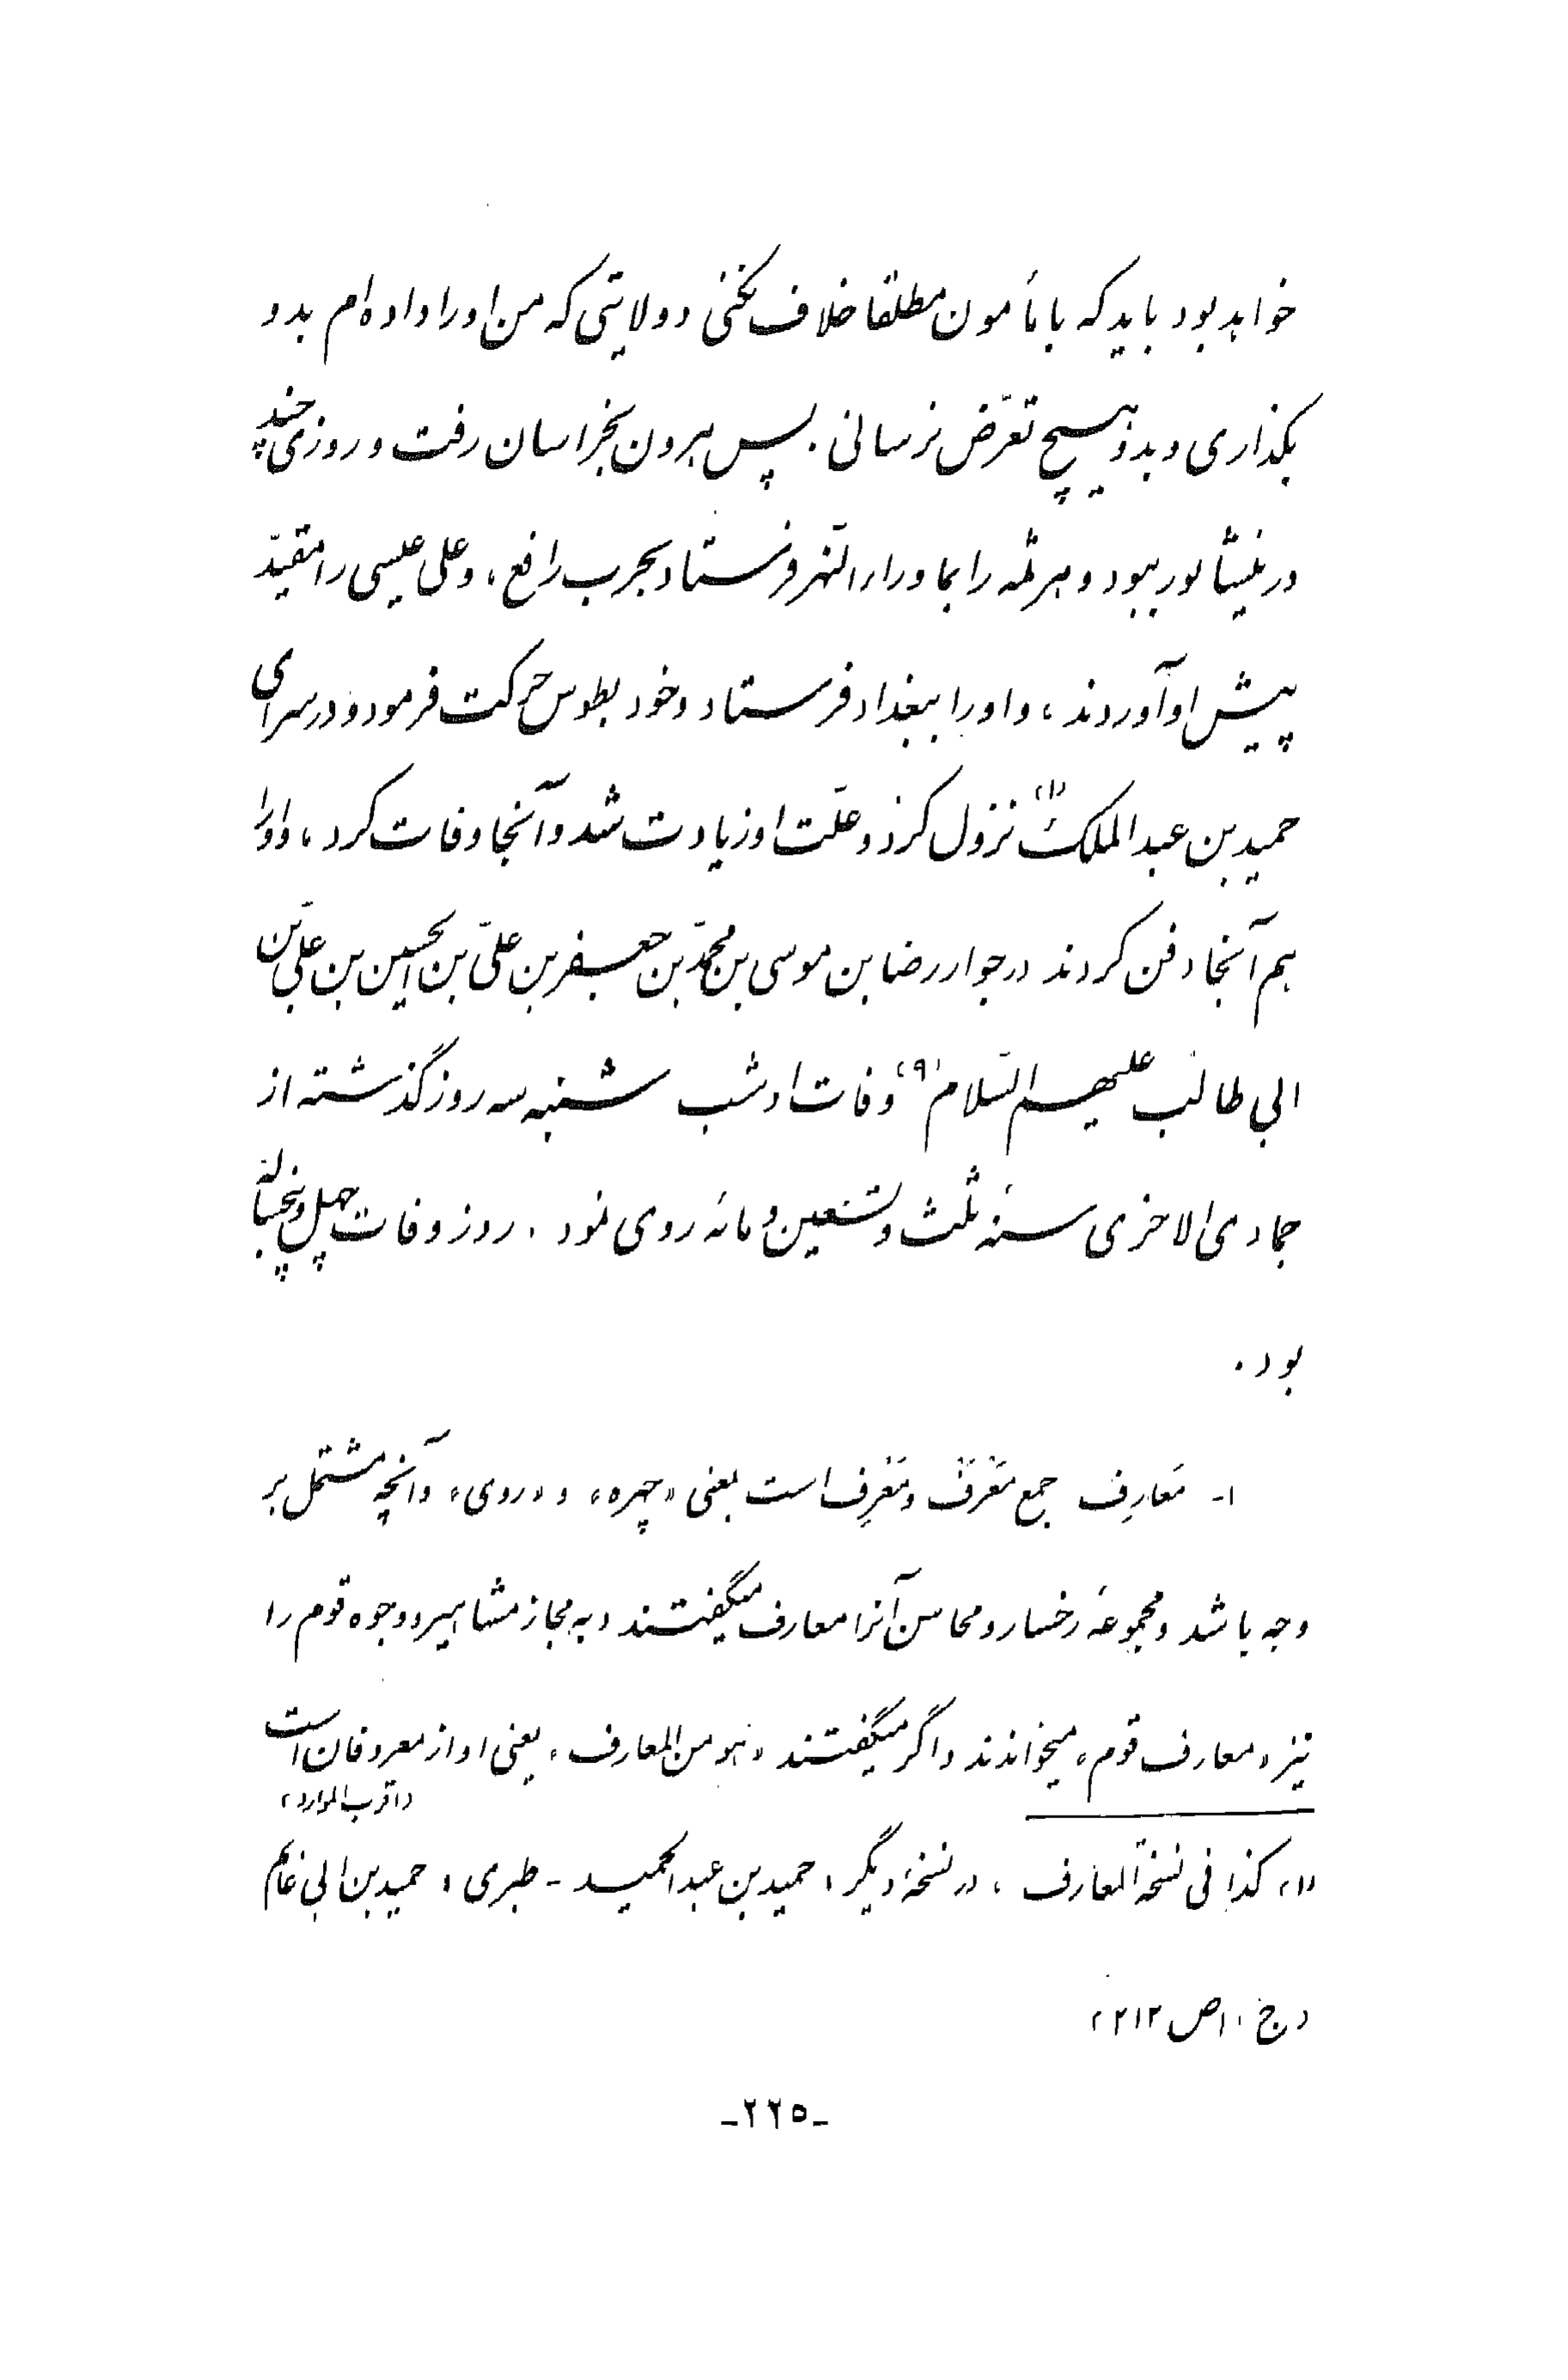 خواهد بود باید که با مأمون مطلقا خلاف نکنی و ولایتی که من او را داده‌ام بدو
بگذاری و بدو هیچ تعرّض نرسانی . پس هرون بخراسان رفت و روزی چند
در نیشابور ببود و هرثمه را بماوراء النّهر فرستاد بحرب رافع ، و علی عیسی را مقیّد
پیش او آوردند ، و او را ببغداد فرستاد و خود بطوس حرکت فرمود و در سرای
حمید بن عبد الملک (۱) نزول کرد و علّت او زیادت شد و آنجا وفات کرد ، و او را
هم آنجا دفن کردند در جوار رضا بن موسی بن محمّد بن جعفر بن علیّ بن الحسین بن علیّ بن
ابی طالب علیهم السّلام (۹) وفات او شب شنبه سه روز گذشته از
جمادی الاخری سنهٔ ثلث و تسعین و مائه روی نمود . روز وفات چهل و پنج‌ساله
بود .
۱- مَعارِف جمع مَعْرَف و مَعْرِف است بمعنی «چهره» و «روی» و آنچه مشتمل بر
وجه باشد و مجموعهٔ رخسار و محاسن آنرا معارف میگفتند و به مجاز مشاهیر و وجوه قوم را
نیز «معارف قوم» میخواندند و اگر میگفتند «هو من المعارف» یعنی او از معروفان است
(اقرب الموارد)
(۱) کذا فی نسخة المعارف ، در نسخهٔ دیگر : حمید بن عبد الحمید - طبری : حمید بن ابی غانم
(ج ۱۰ ص ۲۱۲)
-۲۲۵-